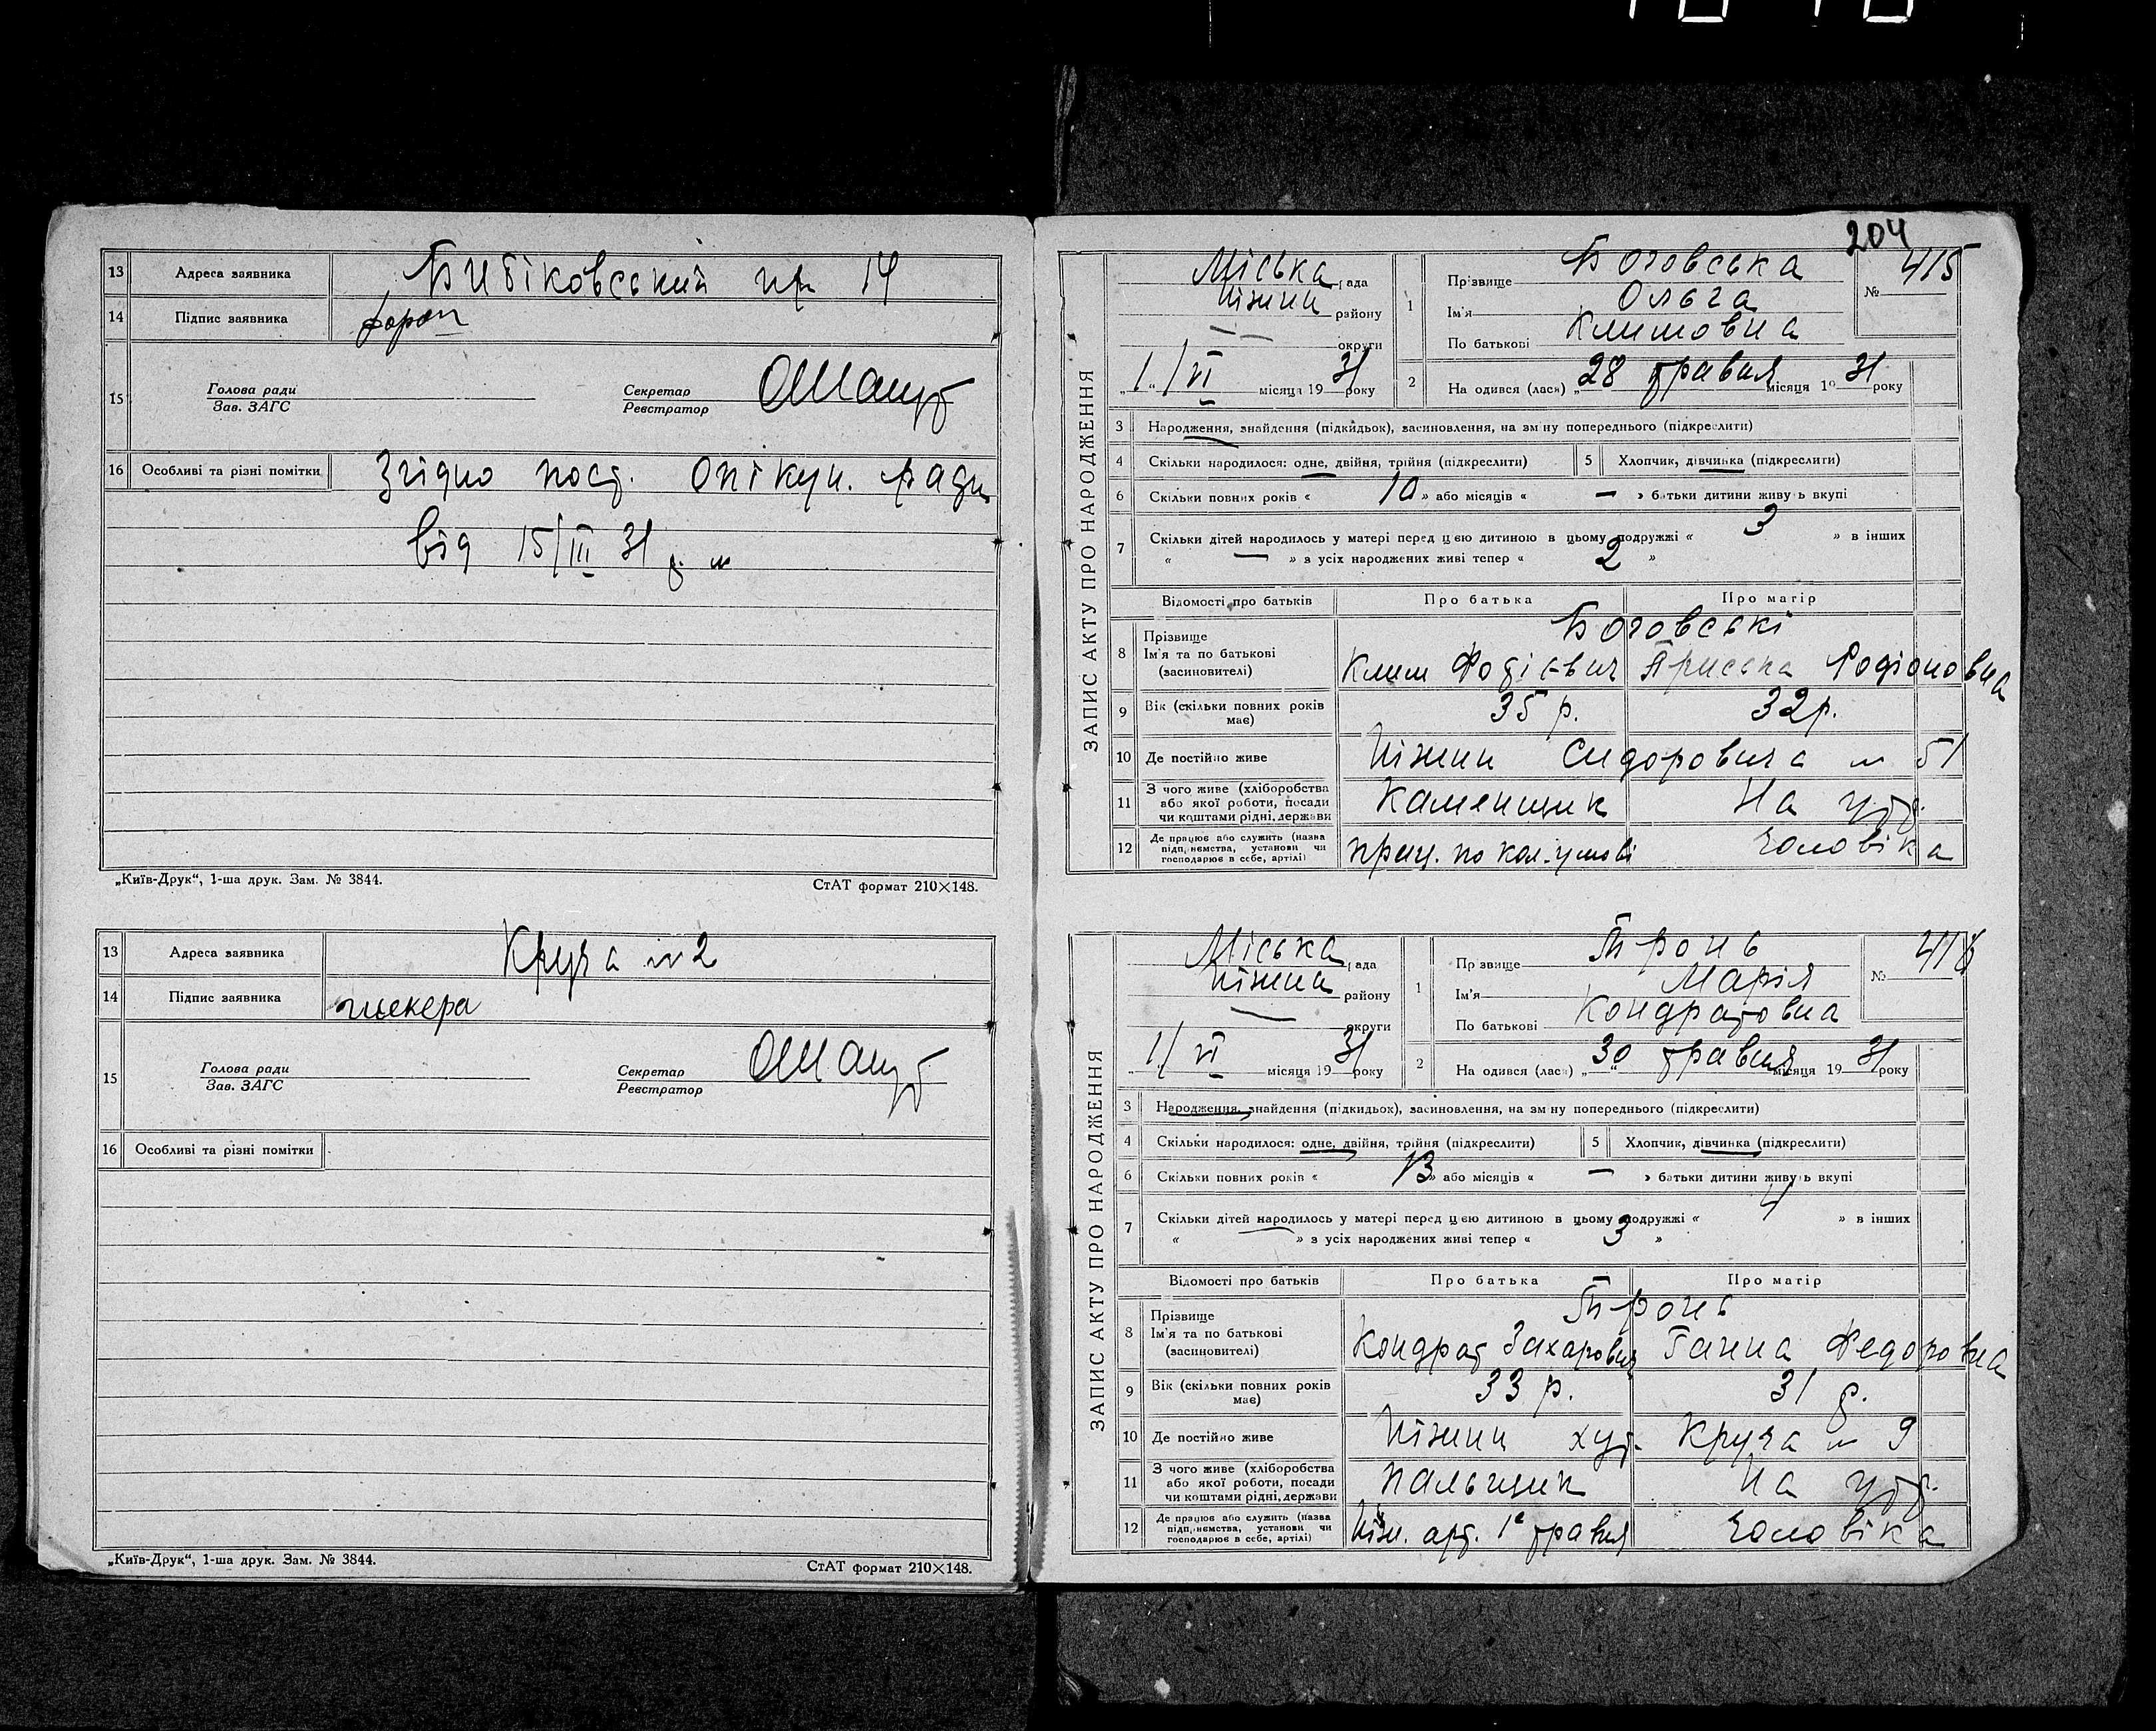 13 Адреса заявника Бибіковський пр 14
14 Підпис заявника
15 Голова ради
Зав. ЗАГС
Секретар
Реєстратор
16 Особливі та різні помітки Згідно пост. Опікун. ради
від 15/III 31 р.
„Київ-Друк“, 1-ша друк. Зам. № 3844. СтАТ формат 210×148.
13 Адреса заявника Круча № 2
14 Підпис заявника
15 Голова ради
Зав. ЗАГС
Секретар
Реєстратор
16 Особливі та різні помітки
„Київ-Друк“, 1-ша друк. Зам. № 3844. СтАТ формат 210×148.
204
ЗАПИС АКТУ ПРО НАРОДЖЕННЯ
Міська рада
Ніжин району
— округи
„1“ / VI місяця 1931 року
1 Прізвище Боговська № 415
Ім'я Ольга
По батькові Климовна
2 Народився (лася) „28 травня місяця 1931 року
3 Народження, знайдення (підкидьок), засиновлення, на зміну попереднього (підкреслити)
4 Скільки народилося: одне, двійня, трійня (підкреслити) 5 Хлопчик, дівчинка (підкреслити)
6 Скільки повних років « 10 » або місяців « — » батьки дитини живуть вкупі
7 Скільки дітей народилось у матері перед цією дитиною в цьому подружжі « 3 » в інших
« — » з усіх народжених живі тепер « 2 »
Відомості про батьків Про батька Про матір
8 Прізвище Боговські
Ім'я та по батькові Клим Фотієвич Приська Родіоновна
(засиновителі)
9 Вік (скільки повних років має) 35 р. 32 р.
10 Де постійно живе Ніжин Сидоровича № 51
11 З чого живе (хліборобства або якої роботи, посади чи коштами рідні, держави Каменщик На утр.
12 Де працює або служить (назва підприємства, установи чи господарює в себе, артілі) прац. по кол. умові чоловіка
ЗАПИС АКТУ ПРО НАРОДЖЕННЯ
Міська рада
Ніжин району
— округи
„1“ / VI місяця 1931 року
1 Прізвище Тронь № 416
Ім'я Марія
По батькові Кондратовна
2 Народився (лася) „30“ травня місяця 1931 року
3 Народження, знайдення (підкидьок), засиновлення, на зміну попереднього (підкреслити)
4 Скільки народилося: одне, двійня, трійня (підкреслити) 5 Хлопчик, дівчинка (підкреслити)
6 Скільки повних років « 13 » або місяців « — » батьки дитини живуть вкупі
7 Скільки дітей народилось у матері перед цією дитиною в цьому подружжі « 4 » в інших
« — » з усіх народжених живі тепер « 3 »
Відомості про батьків Про батька Про матір
8 Прізвище Тронь
Ім'я та по батькові Кондрат Захарович Ганна Федоровна
(засиновителі)
9 Вік (скільки повних років має) 33 р. 31 р.
10 Де постійно живе Ніжин хут. Круча № 9
11 З чого живе (хліборобства або якої роботи, посади чи коштами рідні, держави пильщик На утр.
12 Де працює або служить (назва підприємства, установи чи господарює в себе, артілі) Ніж. арт. 1е травня чоловіка